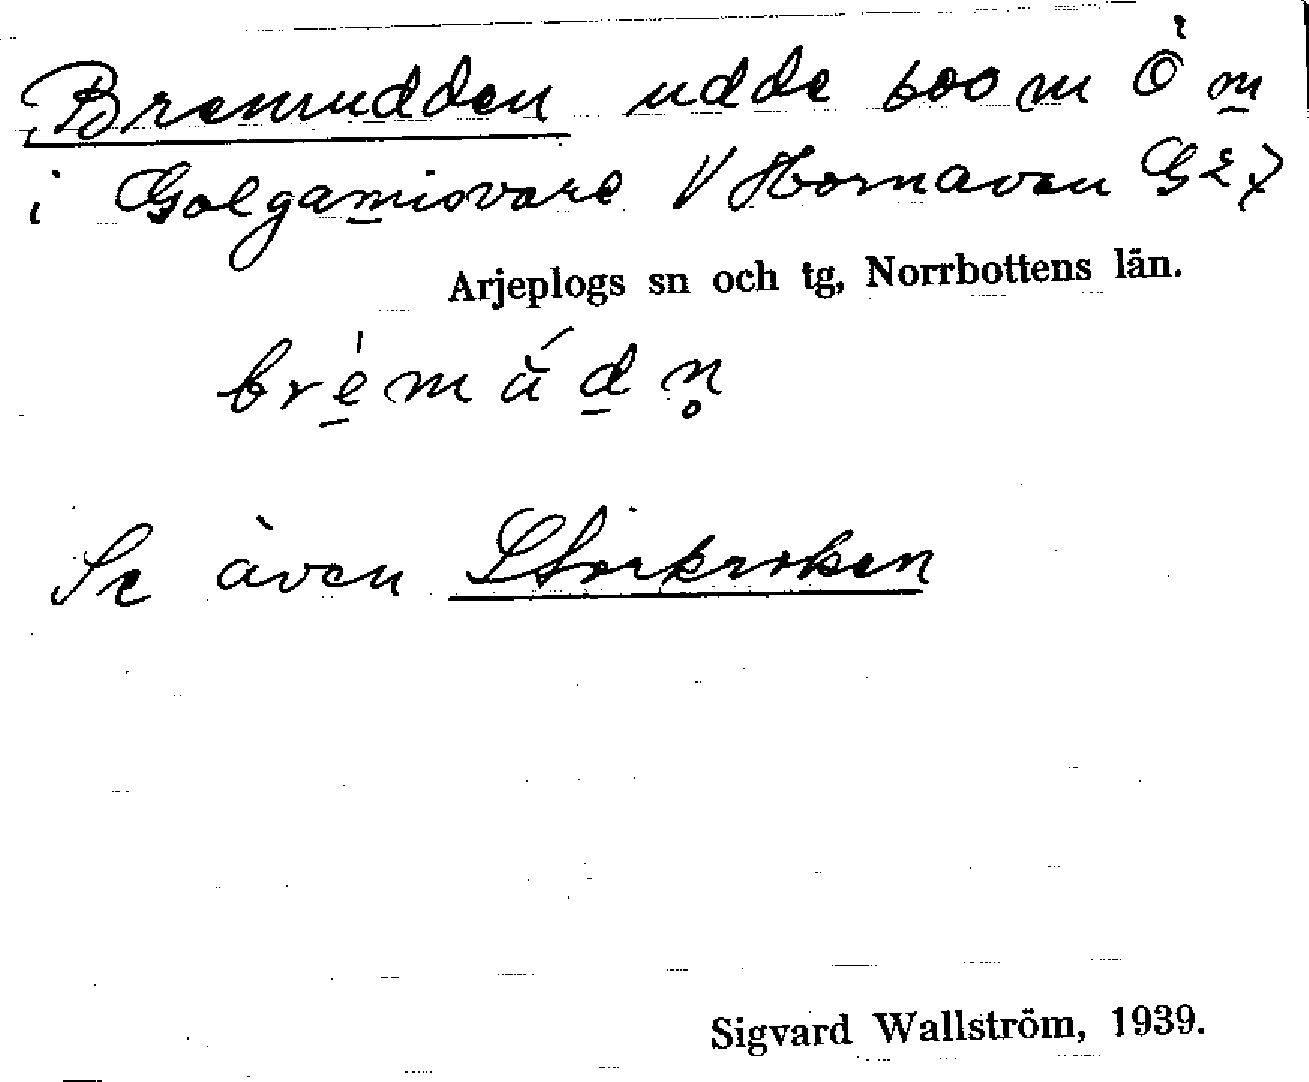 Bremudden udde 600 m Ö m
i Galgamisvare V Hornavan G27
Arjeplogs sn och tg, Norrbottens län.
brémúdn̥
Se även Storkroken
Sigvard Wallström, 1939.